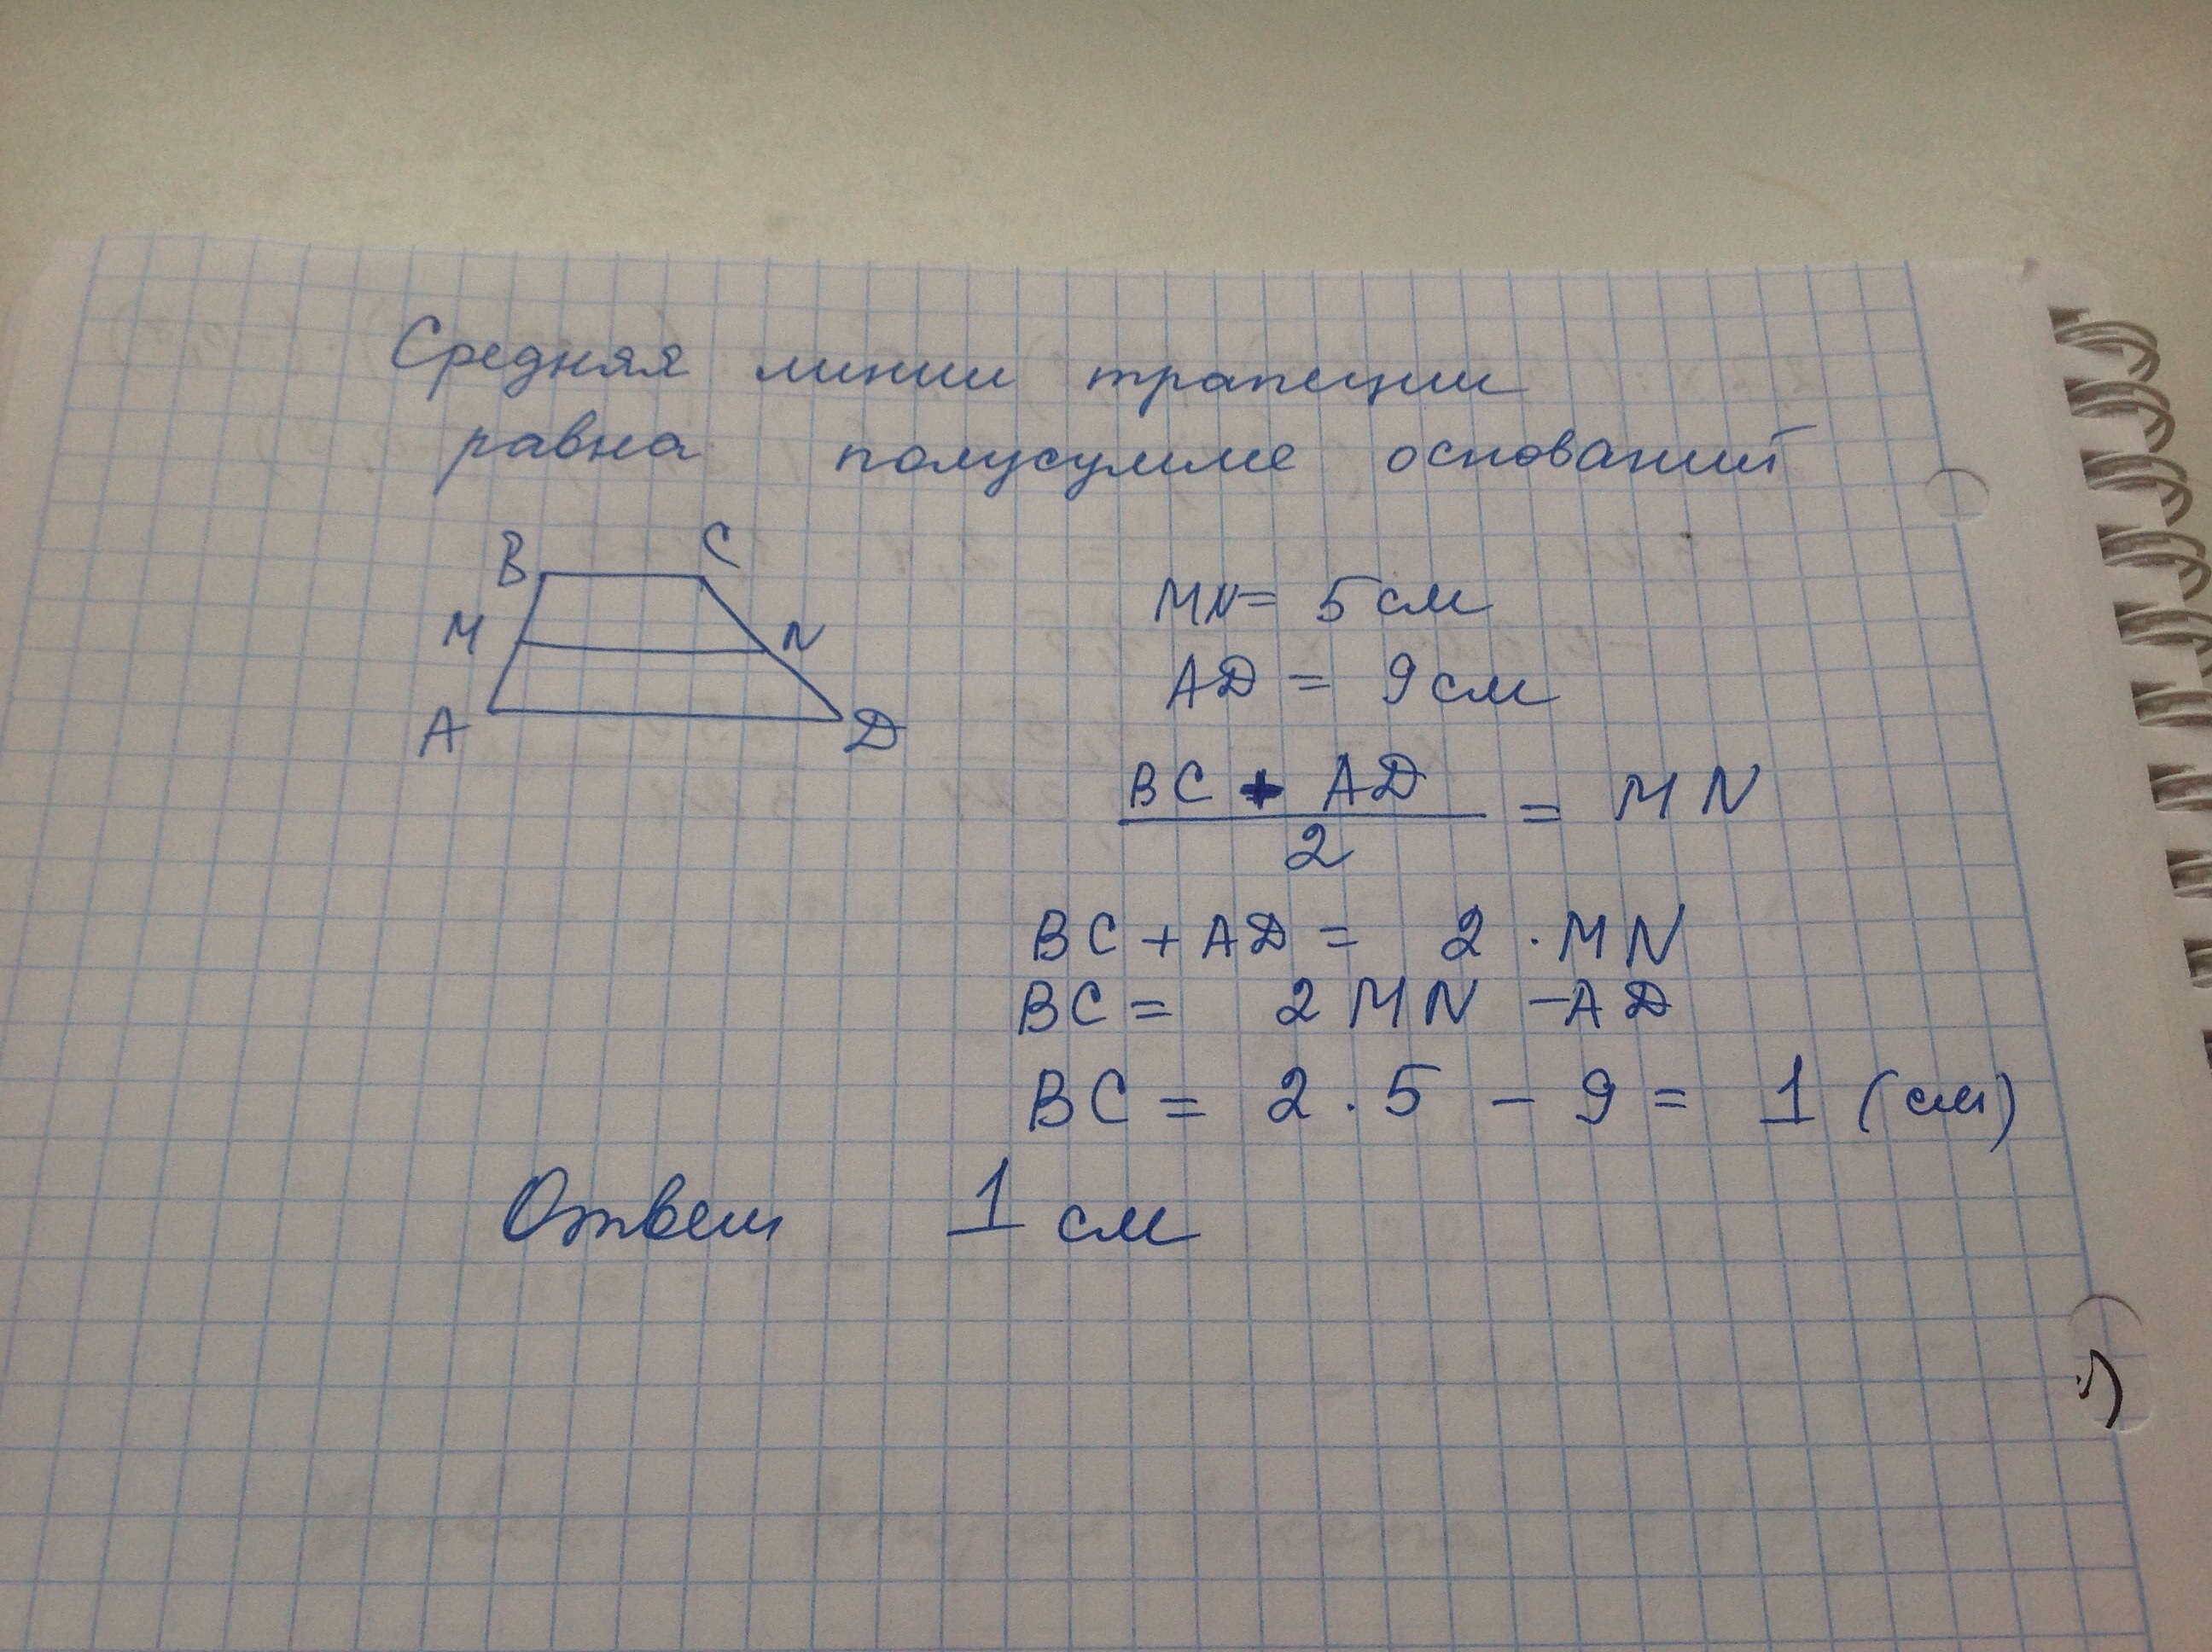 Средняя линии трапеции
равна полусумме оснований
B C
M N
A D
MN = 5 см
AD = 9 см
BC + AD
2
= MN
BC + AD = 2 · MN
BC = 2 MN - AD
BC = 2 · 5 - 9 = 1 (см)
Ответ 1 см